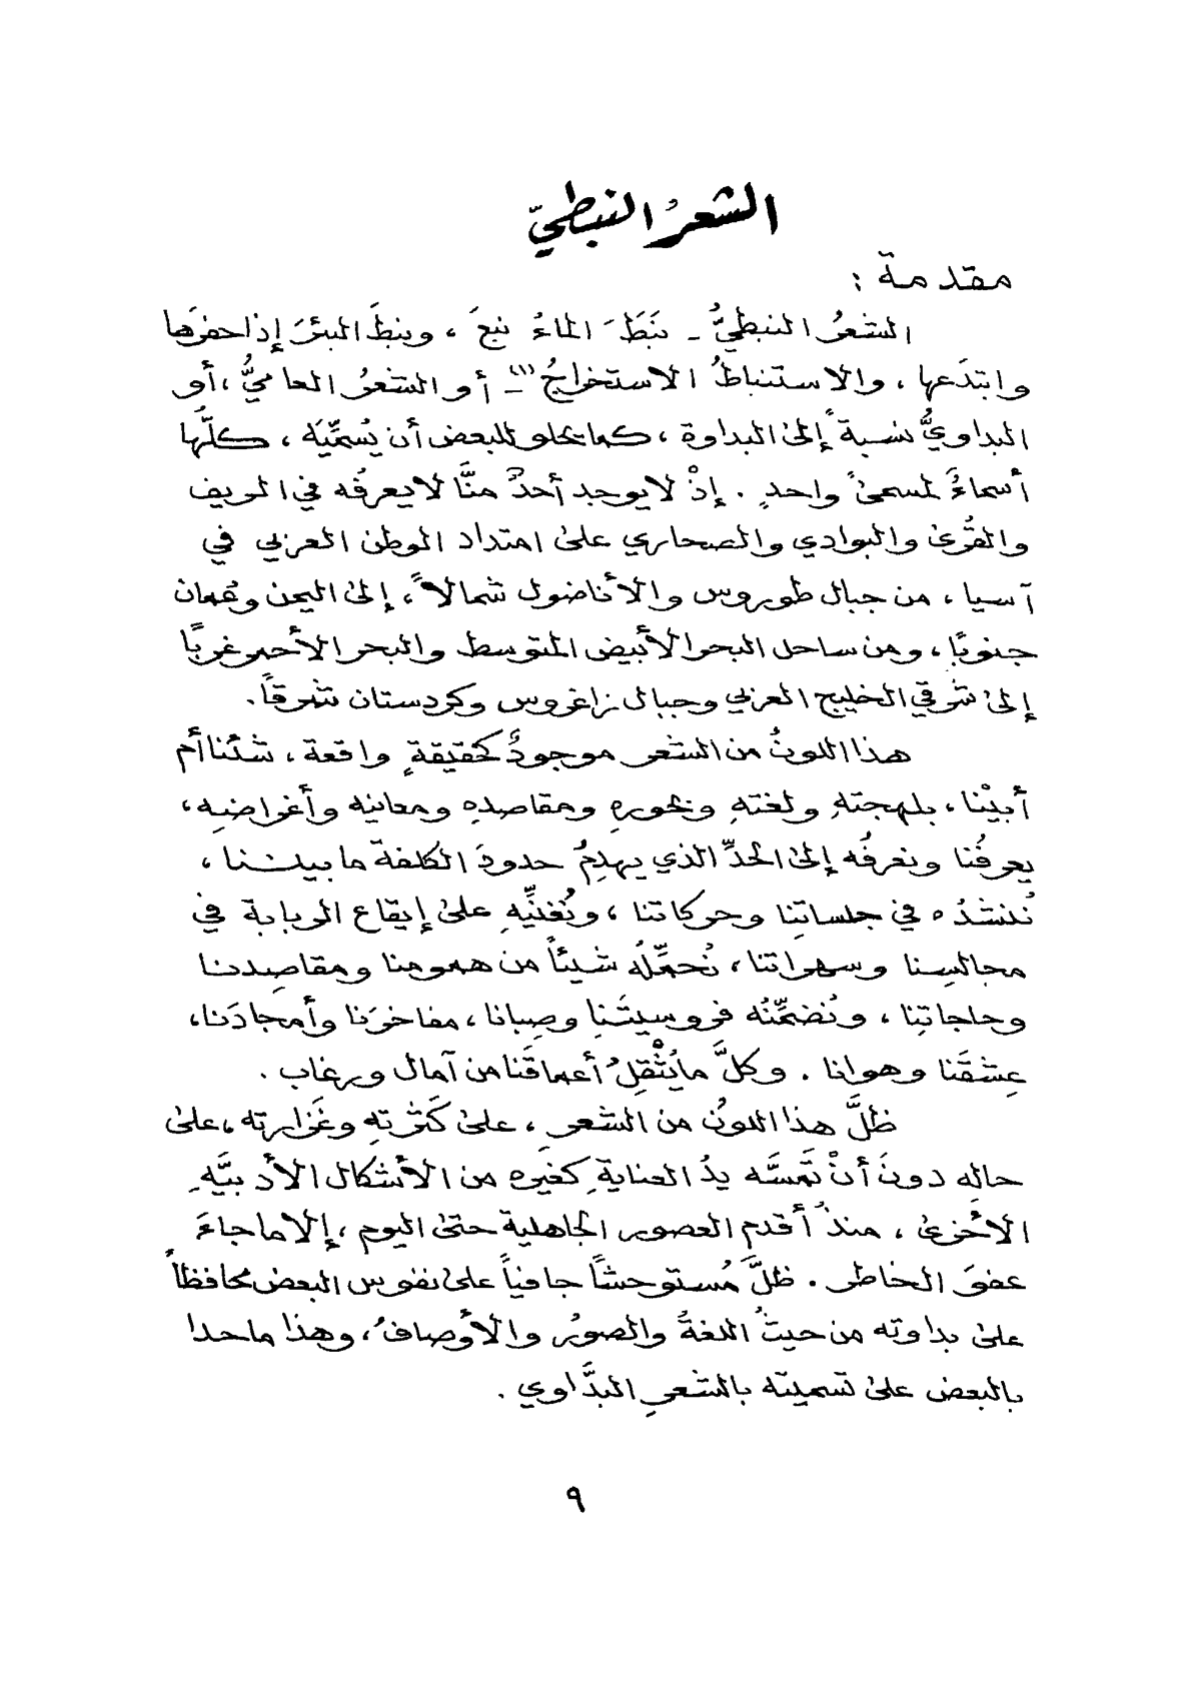 الشعرُ النبطيّ
مقدمة :
الشعرُ النبطيُّ - نَبَطَ الماءُ نبعَ ، ونبطَ البئرَ إذا حفرَها
وابتدَعها ، والاستنباطُ الاستخراجُ (١) - أو الشعرُ العاميُّ ، أو
البداويُّ نسبةً إلى البداوة ، كما يحلو للبعض أن يُسمِّيَه ، كلُّها
أسماءٌ لمسمىً واحدٍ . إذْ لا يوجد أحدٌ منَّا لا يعرفُه في الريف
والقُرى والبوادي والصحاري على امتداد الوطن العربي في
آسيا ، من جبال طوروس والأناضول شمالاً ، إلى اليمن وعُمان
جنوبًا ، ومن ساحل البحر الأبيض المتوسط والبحر الأحمر غربًا
إلى شرقي الخليج العربي وجبال زاغروس وكردستان شرقاً .
هذا اللونُ من الشعر موجودٌ كحقيقةٍ واقعة ، شئنا أم
أبيْنا ، بلهجتهِ ولغتهِ وبحورهِ ومقاصدهِ ومعانيه وأغراضِه ،
يعرفُنا ونعرفُه إلى الحدِّ الذي يهدِمُ حدودَ الكلفة ما بيننا ،
نُنشدُه في جلساتِنا وحركاتنا ، ونُغنِّيهِ على إيقاع الربابة في
مجالسِنا وسهراتنا ، نُحمِّلُه شيئاً من همومنا ومقاصِدنا
وحاجاتِنا ، ونُضمِّنُه فروسيتَنا وصِبانا ، مفاخرَنا وأمجادَنا ،
عِشقَنا وهوانا . وكلَّ ما يُثْقِلُ أعماقَنا من آمال ورغاب .
ظلَّ هذا اللونُ من الشعرِ ، على كَثرتهِ وغَزارته ، على
حاله دونَ أنْ تَمسَّه يدُ العنايةِ كغيره من الأشكال الأدبيَّةِ
الأخرى ، منذُ أقدم العصور الجاهلية حتى اليوم ، إلا ما جاءَ
عفوَ الخاطر . ظلَّ مُستوحشاً جافياً على نفوس البعض محافظاً
على بداوته من حيثُ اللغةُ والصورُ والأوصافُ ، وهذا ما حدا
بالبعض على تسميته بالشعرِ البدَّاوي .
٩